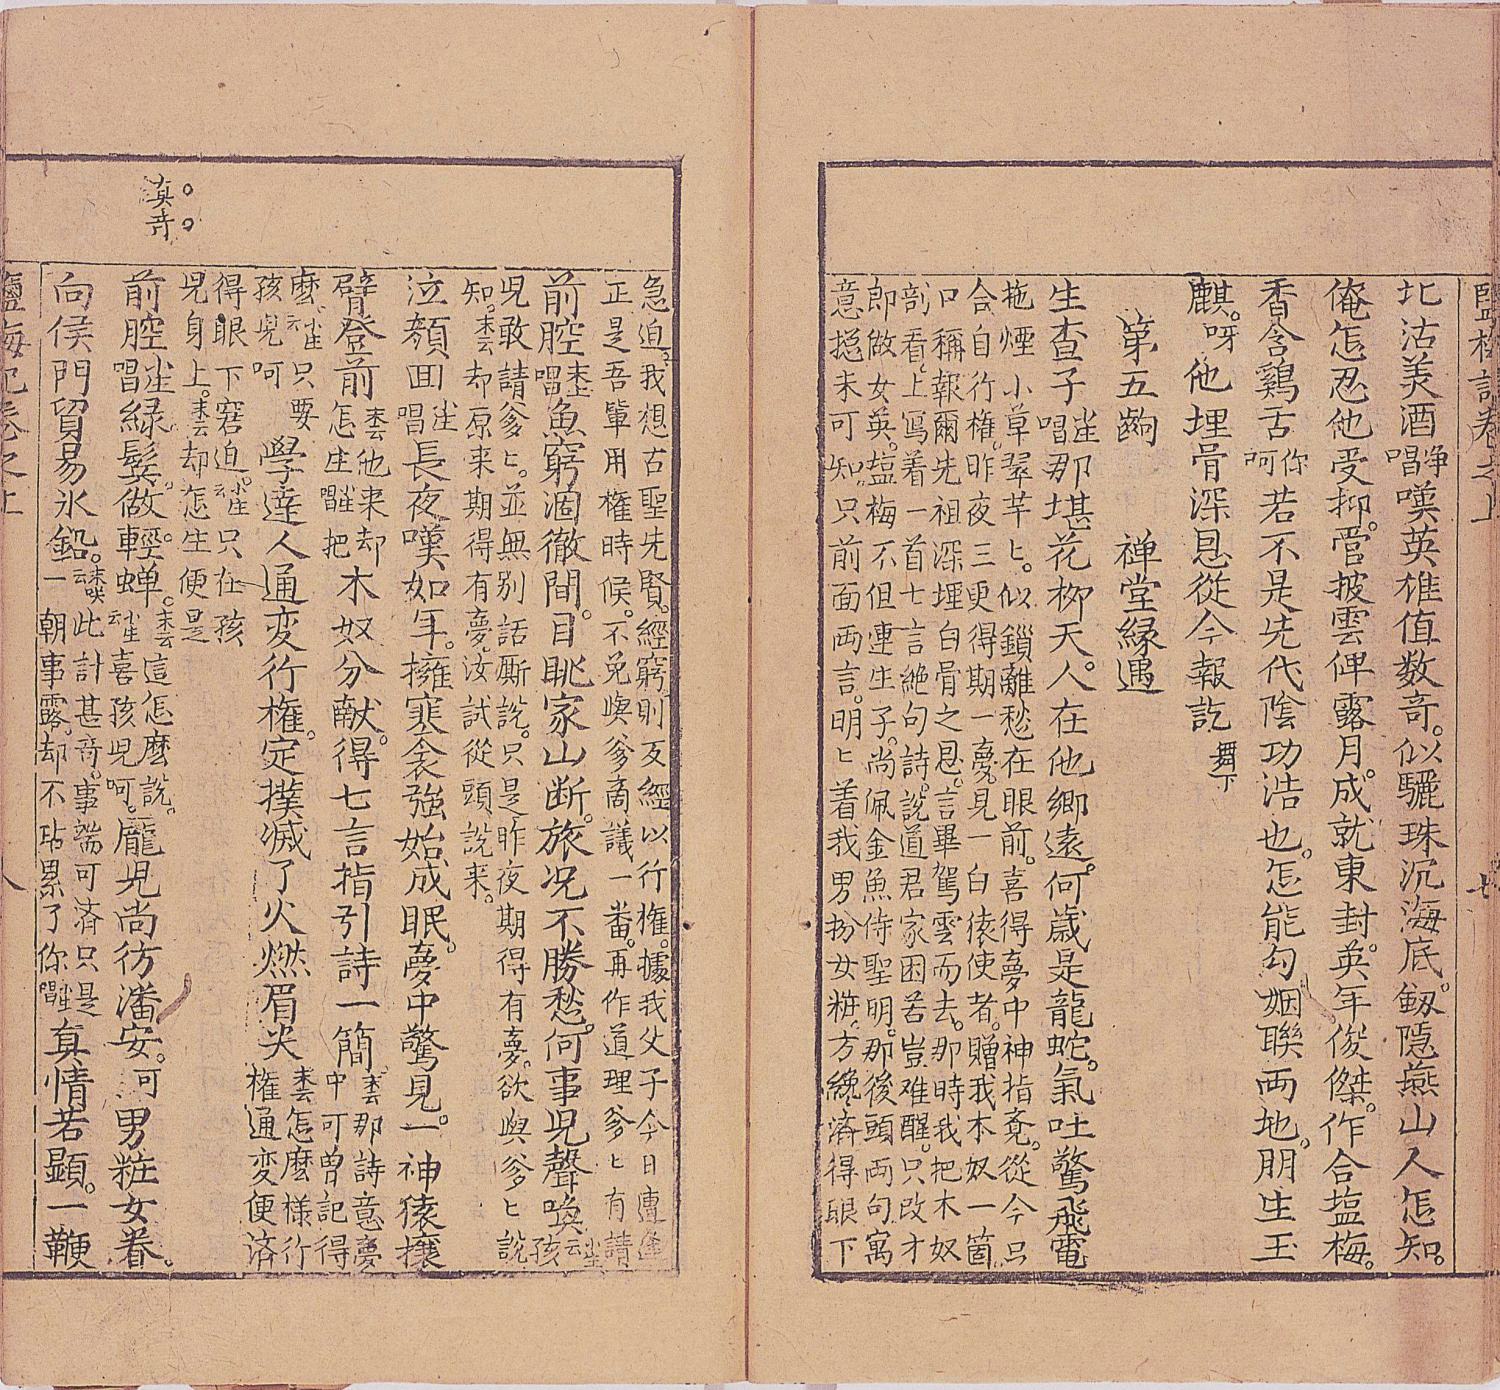 北沽美酒淨唱嘆英雄值数奇。似驪珠沉海底。劔隱燕山人怎知。
俺怎忍他受抑。管披雲俾露月。成就東封。英年俊傑。作合塩梅。
香含鷄舌你呵若不是先代陰功浩也。怎能勾姻聯両地。朋生玉
麒。呀他埋骨深恩從今報訖舞下
第五齣　禅堂縁遇
生查子唱那堪花柳天。人在他鄉遠。何歳是龍蛇。氣吐驚飛電
拖煙小草翠芊〻。似鎖離愁在眼前。喜得夢中神指竟。從今只
合自行權。昨夜三更得期一夢。見一白猿使者。贈我木奴一箇
口稱報爾先祖深埋白骨之恩。言畢駕雲而去。那時我把木奴
剖看。上寫着一首七言絶句詩。說道君家困苦豈难醒。只改才
郎做女英。塩梅不但連生子。尚佩金魚侍聖明。那後頭両句寓
意揔未可知。只前面両言。明〻着我男扮女粧、方纔濟得眼下
急迫。我想古聖先賢。經窮則反經以行權。據我父子今日遭逢
正是吾輩用權時候。不免與爹商議一番。再作道理爹〻有請
前腔末唱魚窮涸徹間。目眺家山断。旅况不勝愁。何事児聲喚生云孩
児敢請爹〻。並無别話厮說。只是昨夜期得有夢。欲與爹〻說
知。末云却原来期得有夢。汝試從頭說来。
泣顔回生唱長夜嘆如年。擁寒衾強始成眠。夢中驚見。一神猿攘
臂登前末云他来却怎生生唱把木奴分献。得七言指引詩一簡末云那詩意夢中可曾記得
麽生云只要孩児呵學逹人通変行權。定撲滅了火燃眉尖末云怎麽樣行權通変便済
得眼下窘迫生云只在孩児身上。末云却怎生便是
前腔生唱緑鬂做。輕。蝉。末云這怎麽說。生云喜孩児呵。龎児尚彷潘安。可男粧女眷。
向侯門貿易氷鉛。末唉云此計甚竒。事端可済只是一朝事露却不玷累了你生唱真情若顕。一鞭
真竒